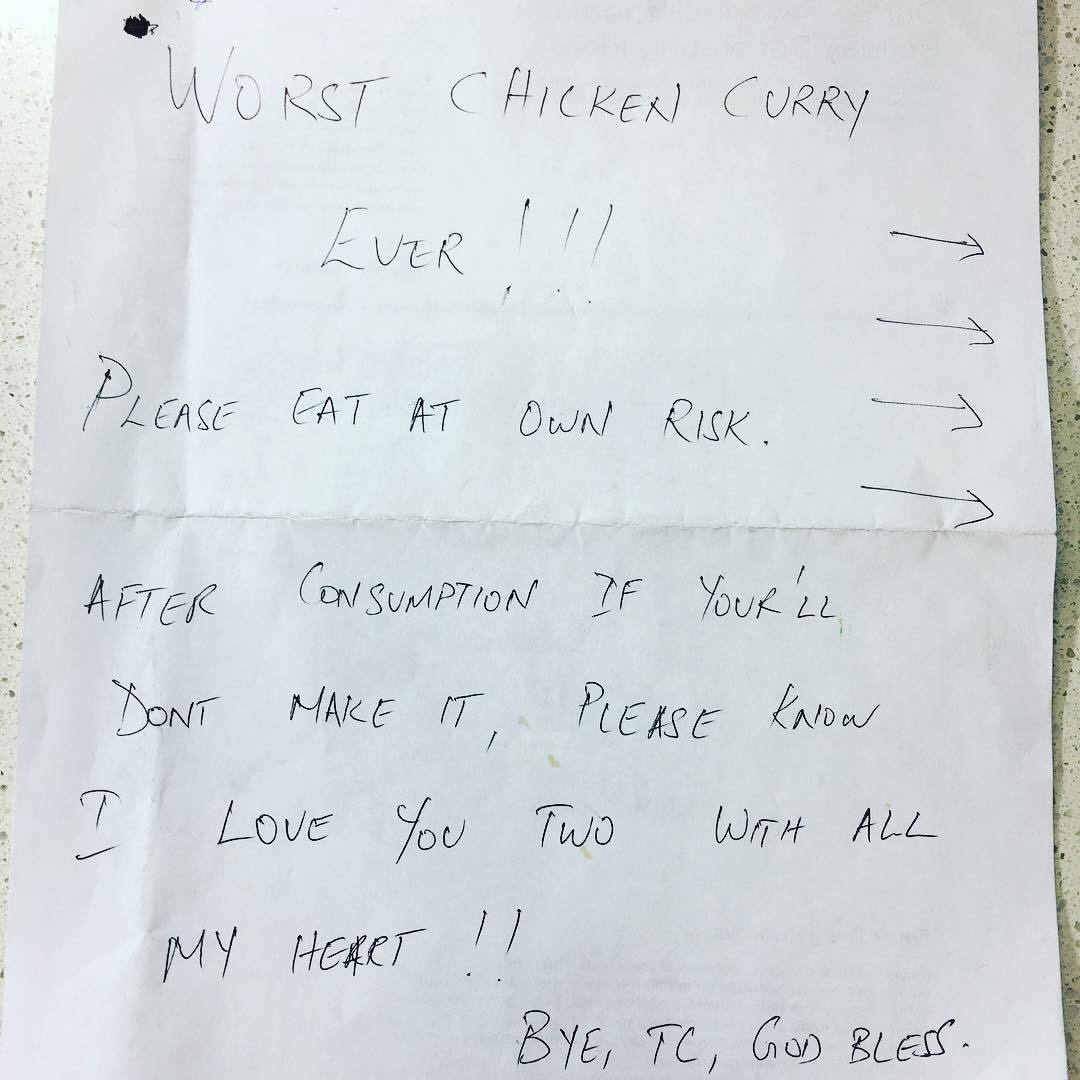 WORST CHICKEN CURRY
EVER !!! →
→
PLEASE EAT AT OWN RISK. →
→
AFTER CONSUMPTION IF YOUR'LL
DONT MAKE IT, PLEASE KNOW
I LOVE YOU TWO WITH ALL
MY HEART !!
BYE, TC, GOD BLESS.